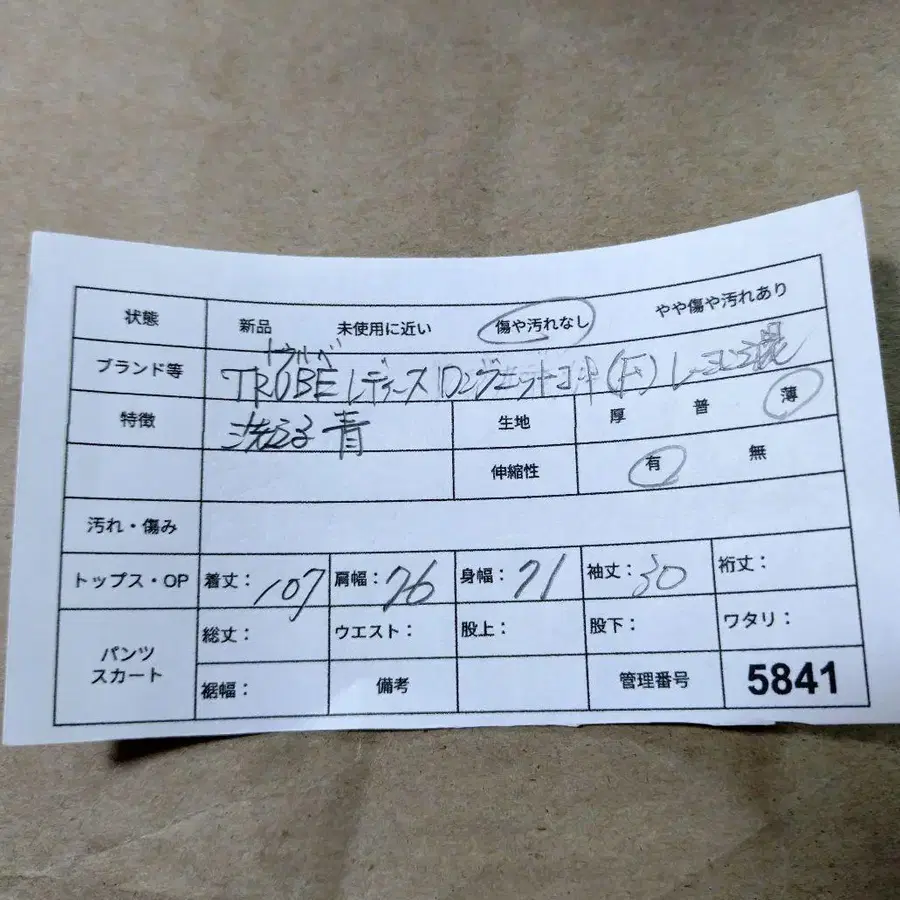 状態 新品 未使用に近い 傷や汚れなし やや傷や汚れあり
トラルベ
ブランド等 TROBE レディース ロングニットコート (F) レーヨン混
特徴 洗える 青 生地 厚 普 薄
伸縮性 有 無
汚れ・傷み
トップス・OP 着丈:107 肩幅:76 身幅:71 袖丈:30 裄丈:
パンツ スカート 総丈: ウエスト: 股上: 股下: ワタリ:
裾幅: 備考 管理番号 5841